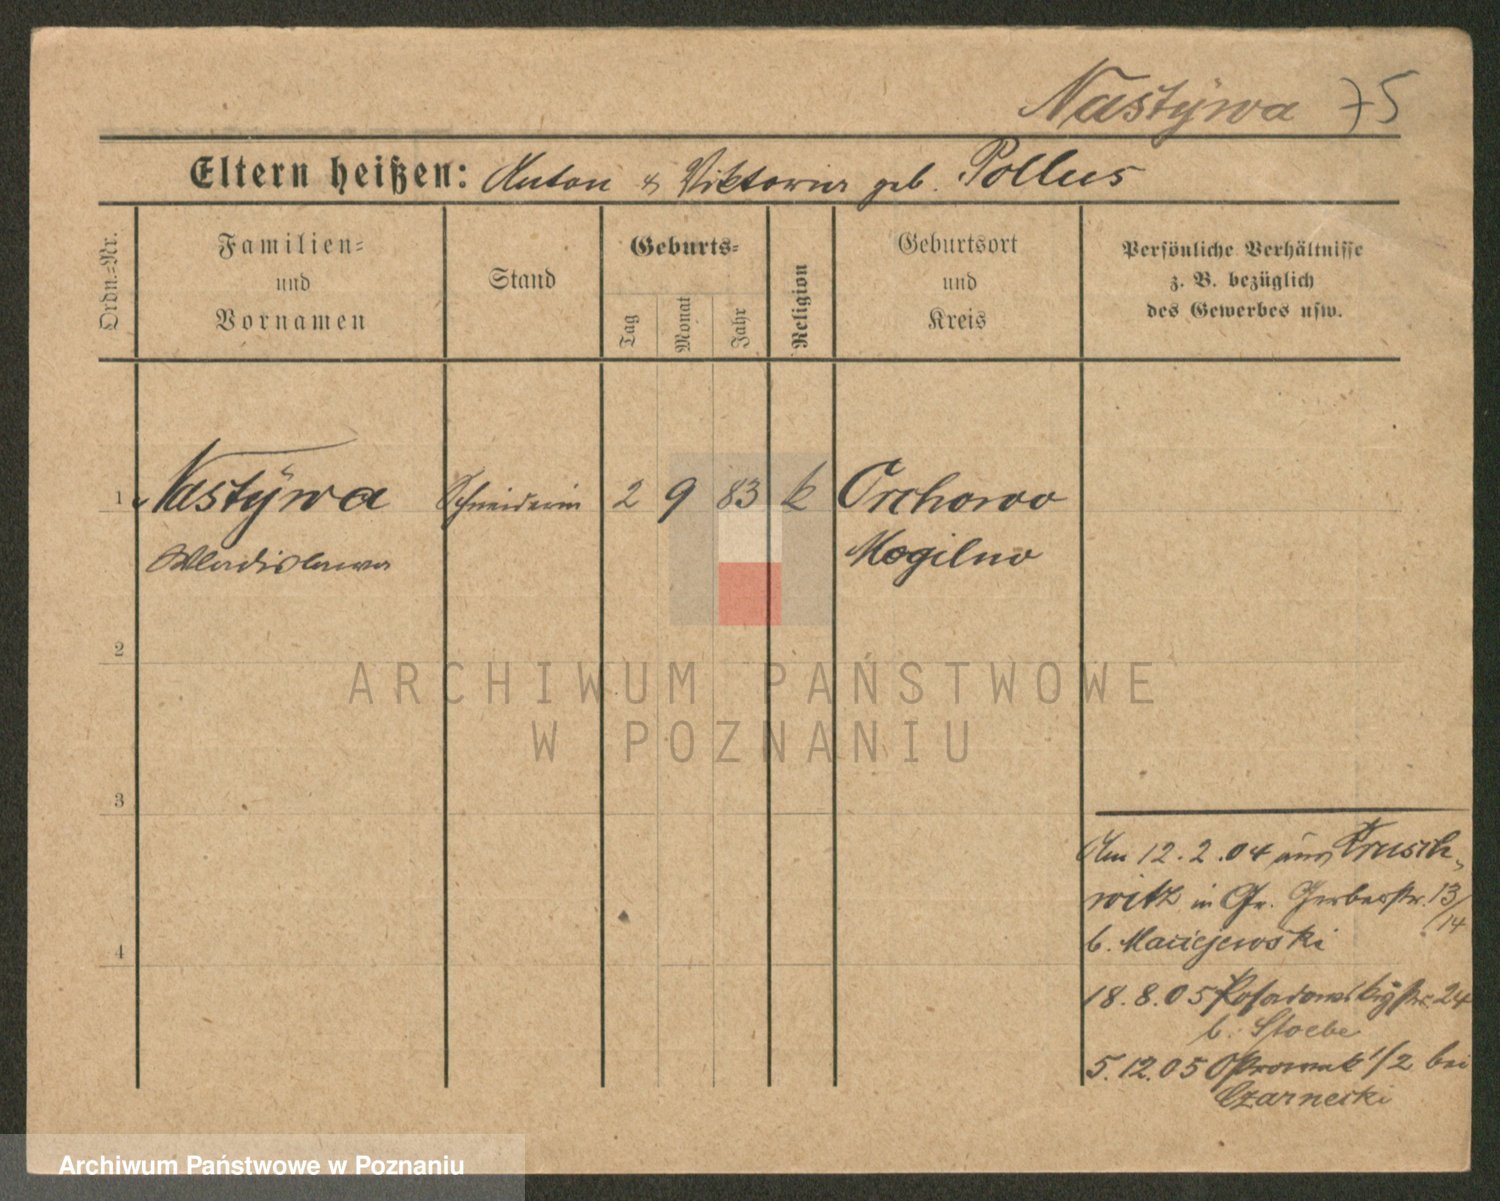 Nastÿwa 75
Eltern heißen: Anton & Viktoria geb. Pollus
Ordn.-Nr.
Familien-
und
Vornamen
Stand
Geburts-
Tag
Monat
Jahr
Religion
Geburtsort
und
Kreis
Persönliche Verhältnisse
z. B. bezüglich
des Gewerbes usw.
1 Nastÿwa Schneiderin 2 9 83 k Orchowo
Wladislawa Mogilno
2
3
4
Am 12.2.04 aus Krusch-
witz in Gr. Gerberstr. 13/14
b. Maciejewski
18.8.05 Posadowskystr. 24
b. Stoebe
5.12.05 1/2 bei
Czarnecki
ARCHIWUM PAŃSTWOWE
W POZNANIU
Archiwum Państwowe w Poznaniu